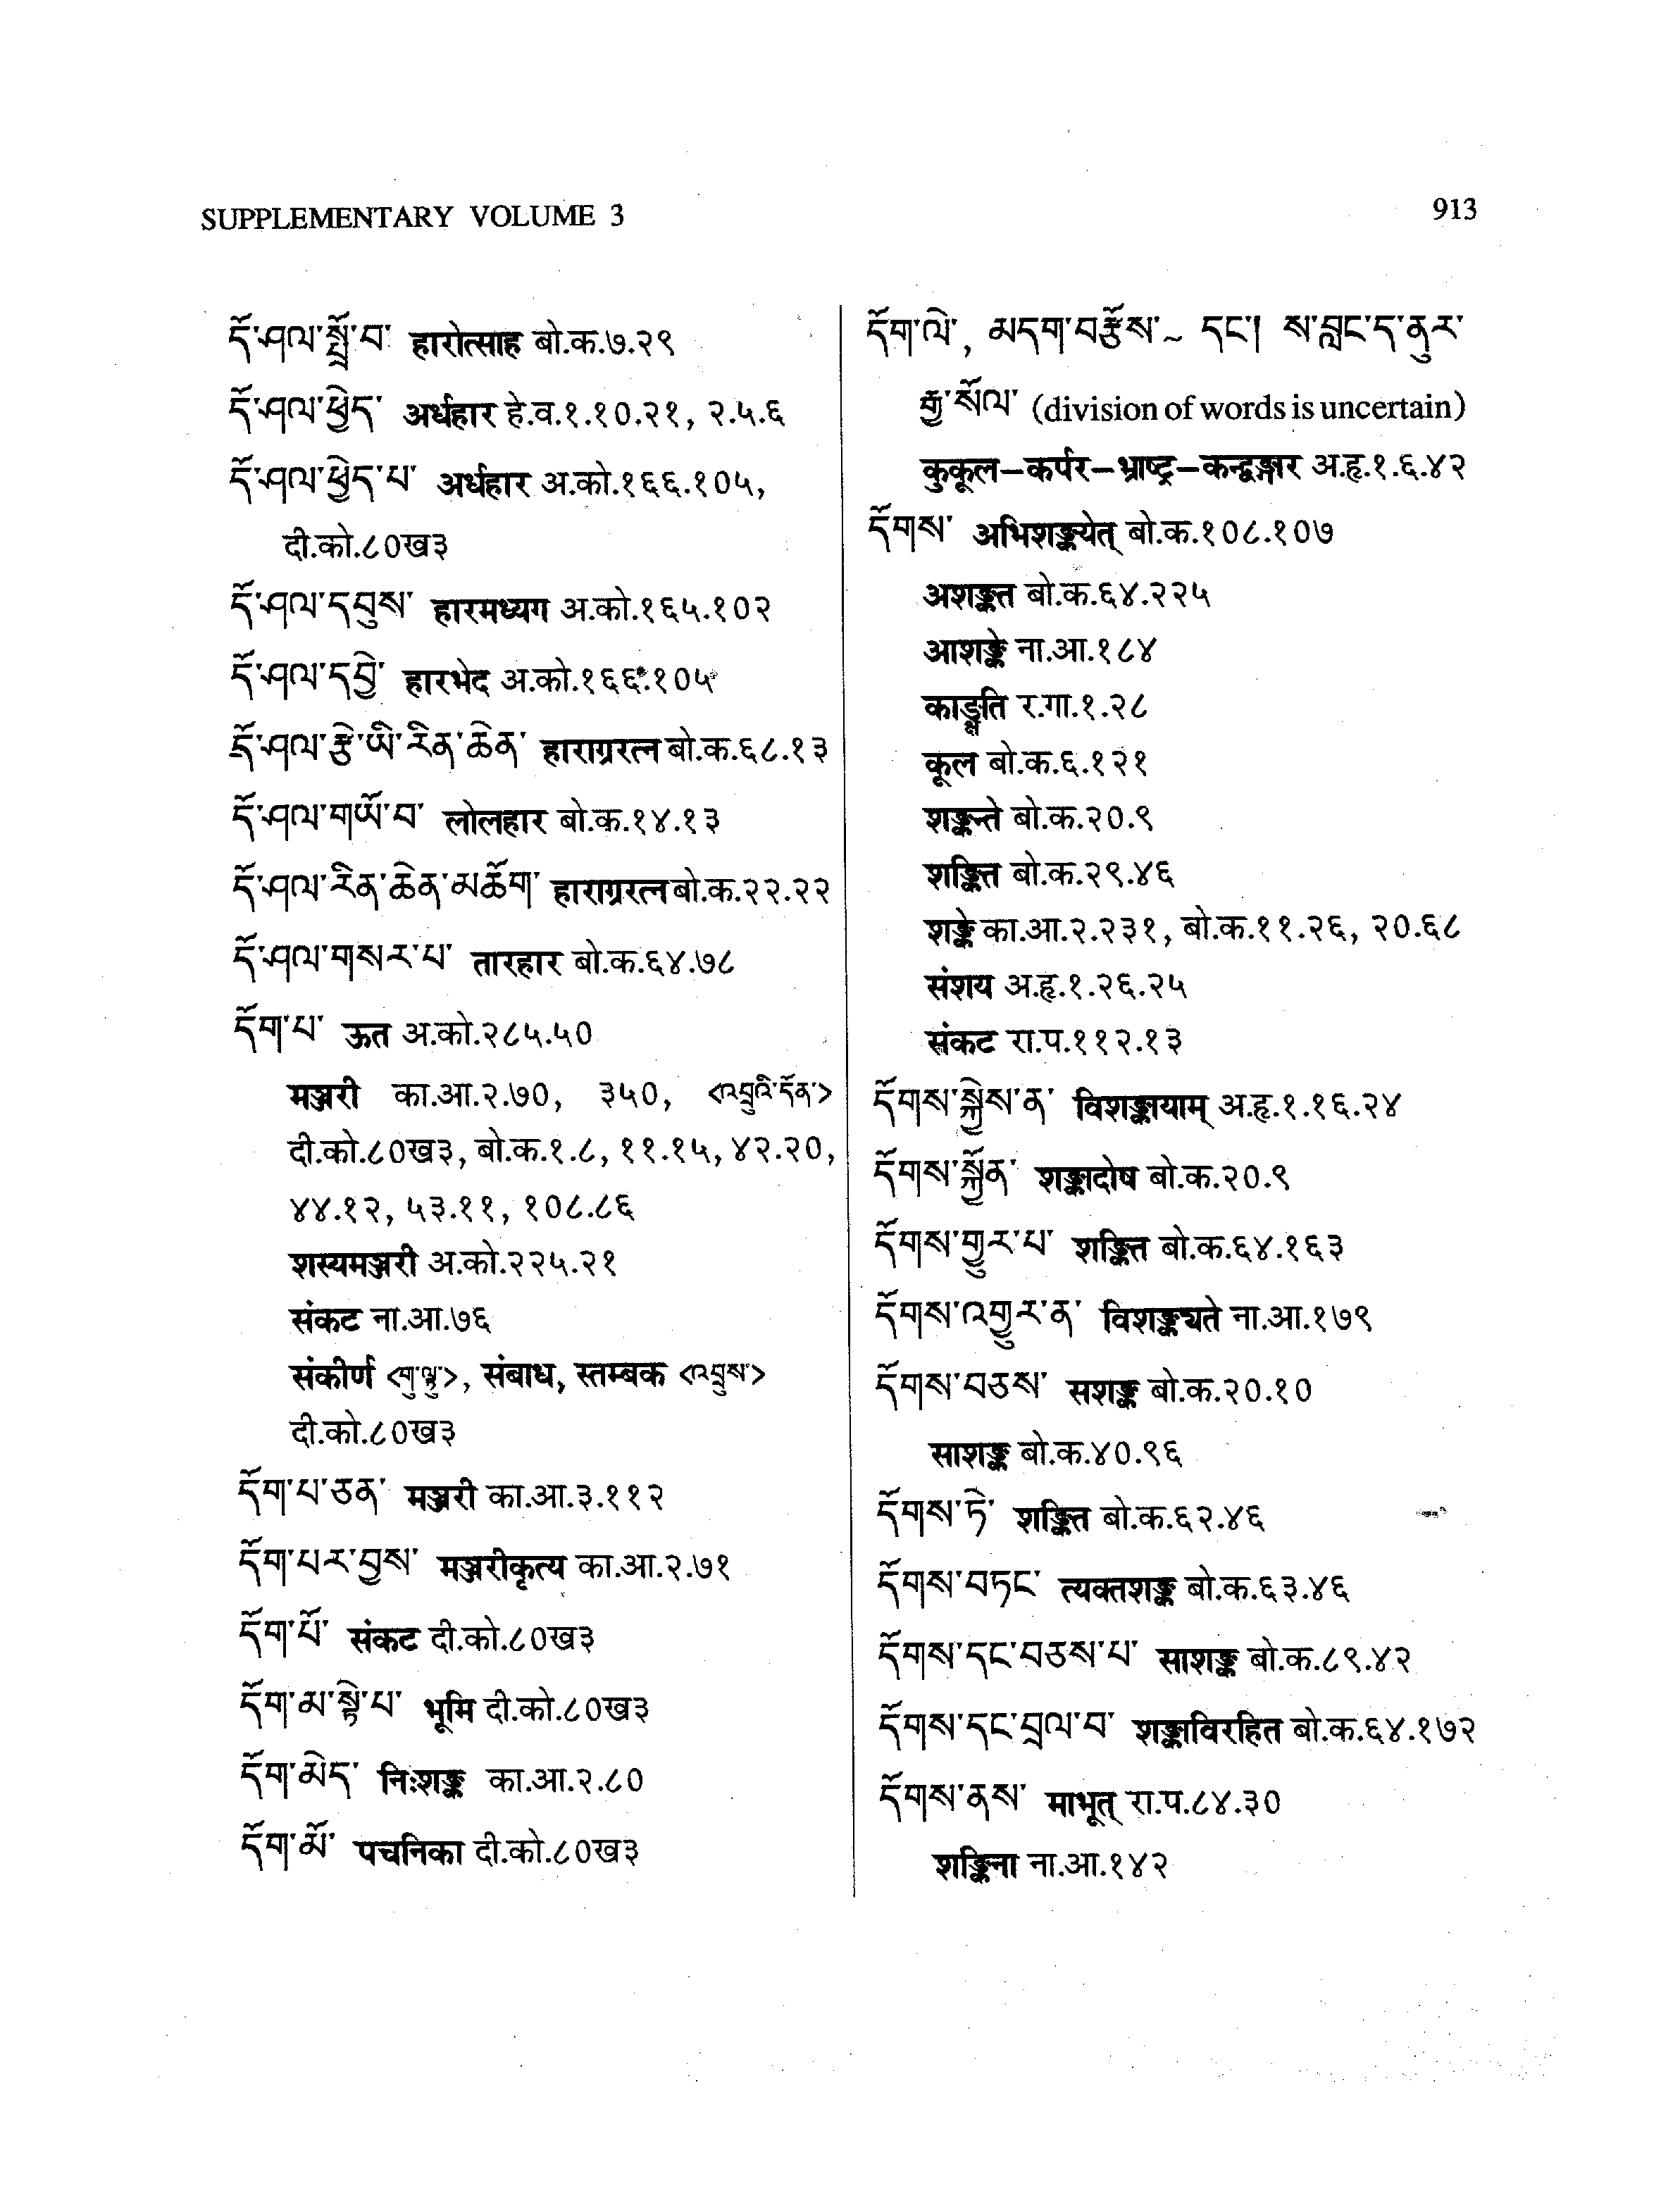 SUPPLEMENTARY VOLUME 3
913
དོ་ཤལ་སྤྲོ་བ་ हारोत्साह बो.क.७.२९
དོ་ཤལ་ཕྱེད་ अर्धहार हे.व.१.१०.२१, २.५.६
དོ་ཤལ་ཕྱེད་པ་ अर्धहार अ.को.१६६.१०५,
दी.को.८०ख३
དོ་ཤལ་དབུས་ हारमध्यग अ.को.१६५.१०२
དོ་ཤལ་དབྱེ་ हारभेद अ.को.१६६.१०५
དོ་ཤལ་རྩེ་ཡི་རིན་ཆེན་ हाराग्ररत्न बो.क.६८.१३
དོ་ཤལ་གཡོ་བ་ लोलहार बो.क.१४.१३
དོ་ཤལ་རིན་ཆེན་མཆོག་ हाराग्ररत्न बो.क.२२.२२
དོ་ཤལ་གསར་པ་ तारहार बो.क.६४.७८
དོག་པ་ ऊत अ.को.२८५.५०
मञ्जरी का.आ.२.७०, ३५०, <འབྲུའི་དོན་>
दी.को.८०ख३, बो.क.१.८, ११.१५, ४२.२०,
४४.१२, ५३.११, १०८.८६
शस्यमञ्जरी अ.को.२२५.२१
संकट ना.आ.७६
संकीर्ण <གུ་ལྷུ་>, संबाध, स्तम्बक <འབྲུས་>
दी.को.८०ख३
དོག་པ་ཅན་ मञ्जरी का.आ.३.११२
དོག་པར་བྱས་ मञ्जरीकृत्य का.आ.२.७१
དོག་པོ་ संकट दी.को.८०ख३
དོག་མ་སྟེ་པ་ भूमि दी.को.८०ख३
དོག་མེད་ निःशङ्क का.आ.२.८०
དོག་མོ་ पचनिका दी.को.८०ख३
དོག་ལེ་, མདག་བརྩོས་~ དང་། ས་བླང་ད་ནུར་
རྒྱ་སོལ་ (division of words is uncertain)
कुकूल-कर्पर-भ्राष्ट्र-कन्द्वङ्गार अ.हृ.१.६.४२
དོགས་ अभिशङ्कयेत् बो.क.१०८.१०७
अशङ्कत बो.क.६४.२२५
आशङ्के ना.आ.१८४
काङ्क्षति र.गा.१.२८
कूल बो.क.६.१२१
शङ्कन्ते बो.क.२०.९
शङ्कित बो.क.२९.४६
शङ्के का.आ.२.२३१, बो.क.११.२६, २०.६८
संशय अ.हृ.१.२६.२५
संकट रा.प.११२.१३
དོགས་སྐྱེས་ན་ विशङ्कायाम् अ.हृ.१.१६.२४
དོགས་སྐྱོན་ शङ्कादोष बो.क.२०.९
དོགས་གྱུར་པ་ शङ्कित बो.क.६४.१६३
དོགས་འགྱུར་ན་ विशङ्क्यते ना.आ.१७९
དོགས་བཅས་ सशङ्क बो.क.२०.१०
साशङ्क बो.क.४०.९६
དོགས་ཏེ་ शङ्कित बो.क.६२.४६
དོགས་བཏང་ त्यक्तशङ्क बो.क.६३.४६
དོགས་དང་བཅས་པ་ साशङ्क बो.क.८९.४२
དོགས་དང་བྲལ་བ་ शङ्काविरहित बो.क.६४.१७२
དོགས་ནས་ माभूत् रा.प.८४.३०
शङ्किना ना.आ.१४२